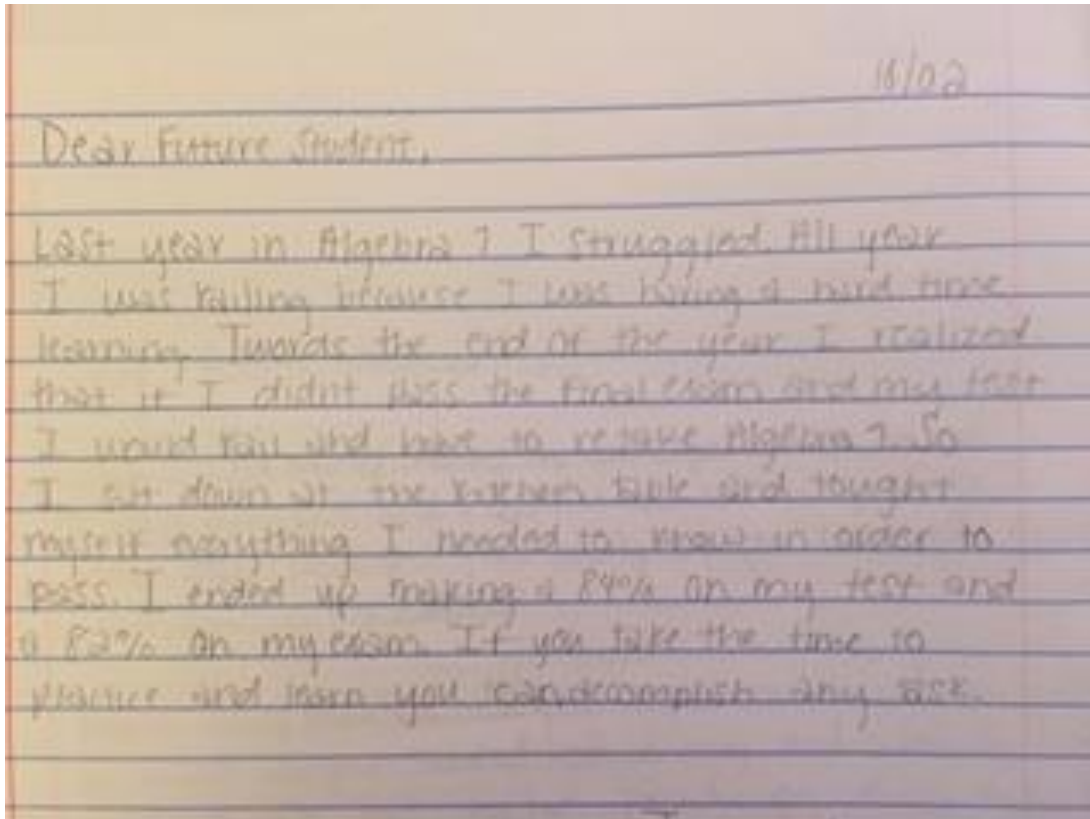 Dear Future Student,
Last year in Algebra 1 I struggled. All year
I was failing because I was having a hard time
learning. Twords the end of the year I realized
that if I didnt pass the final exam and my test
I would fail and have to retake Algebra 1. So
I sat down at the kitchen table and tought
myself everything I needed to know in order to
pass. I ended up making a 84% on my test and
a 82% on my exam. If you take the time to
practice and learn you can accomplish any task.